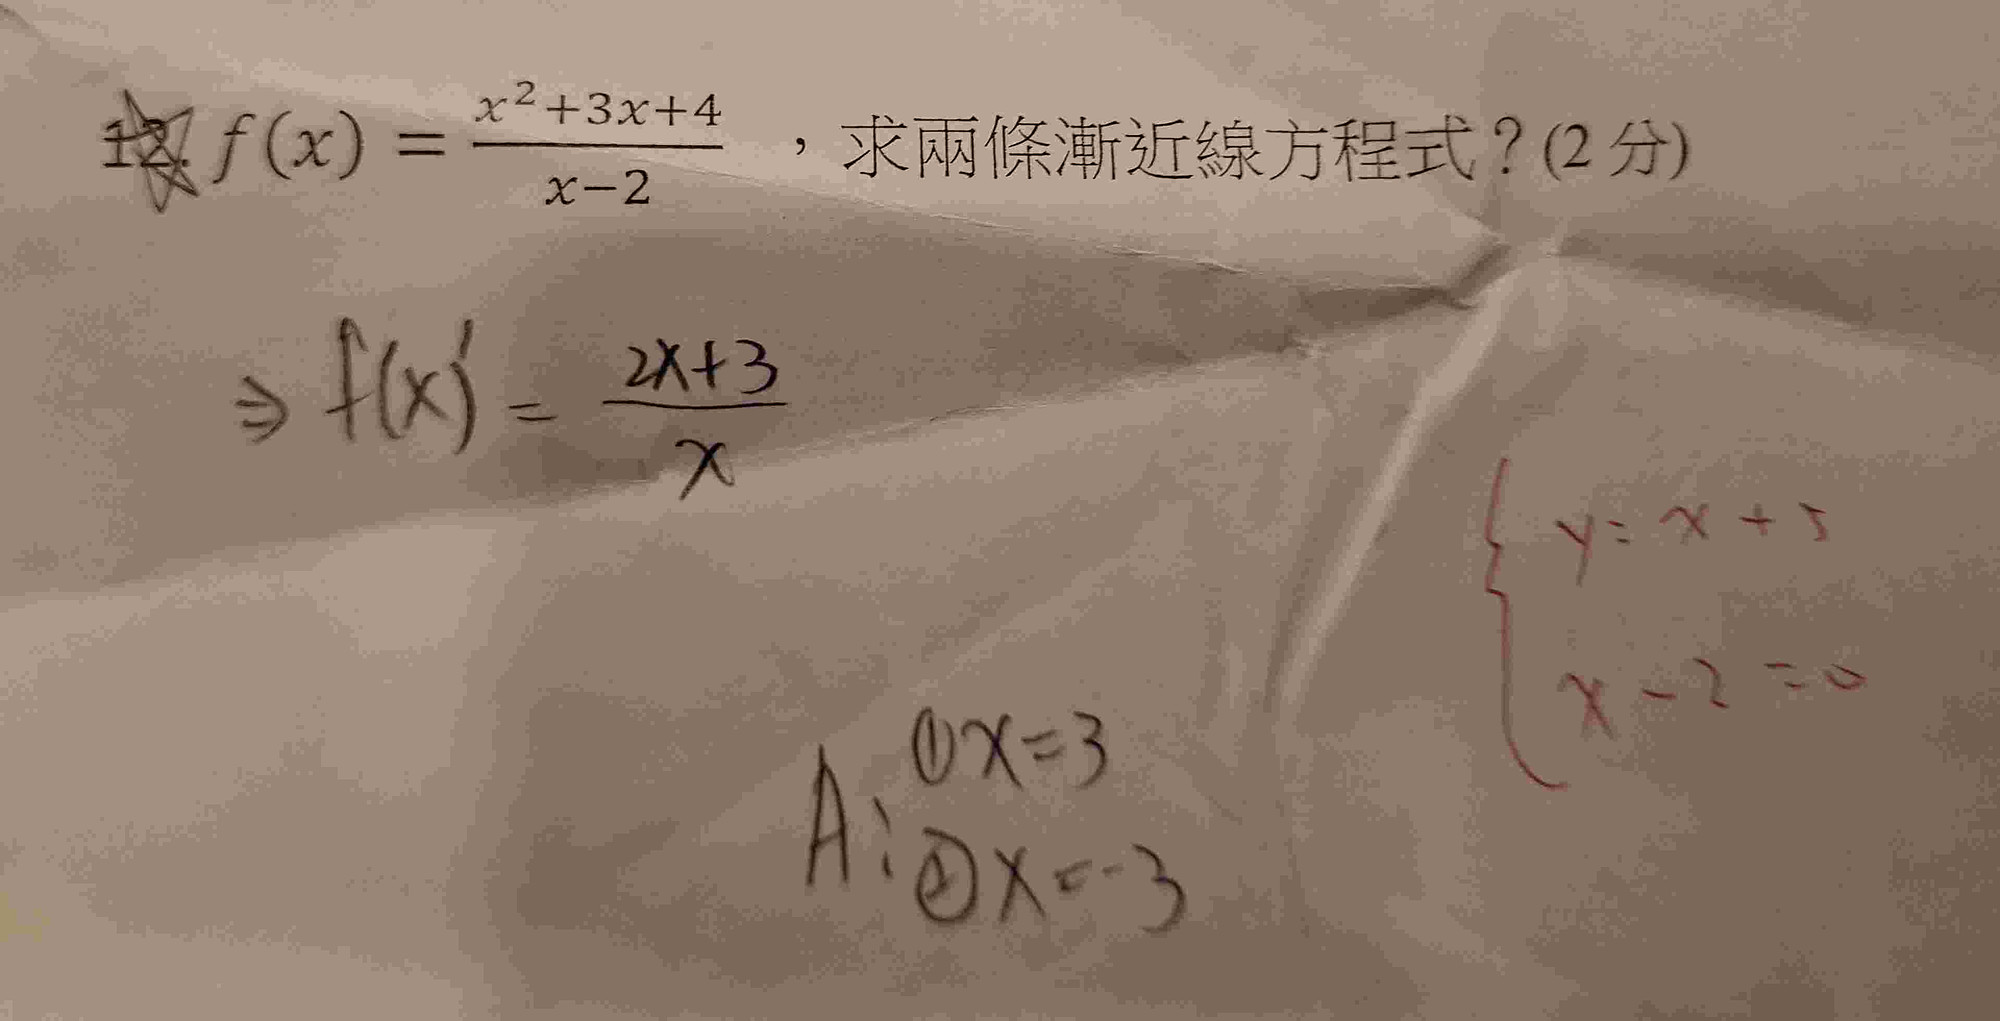 12. f(x) = (x²+3x+4)/(x−2) ，求兩條漸近線方程式？(2 分)
⇒ f(x)' = (2x+3)/x
{ y = x + 5
x − 2 = 0
A: ① x = 3
② x = -3